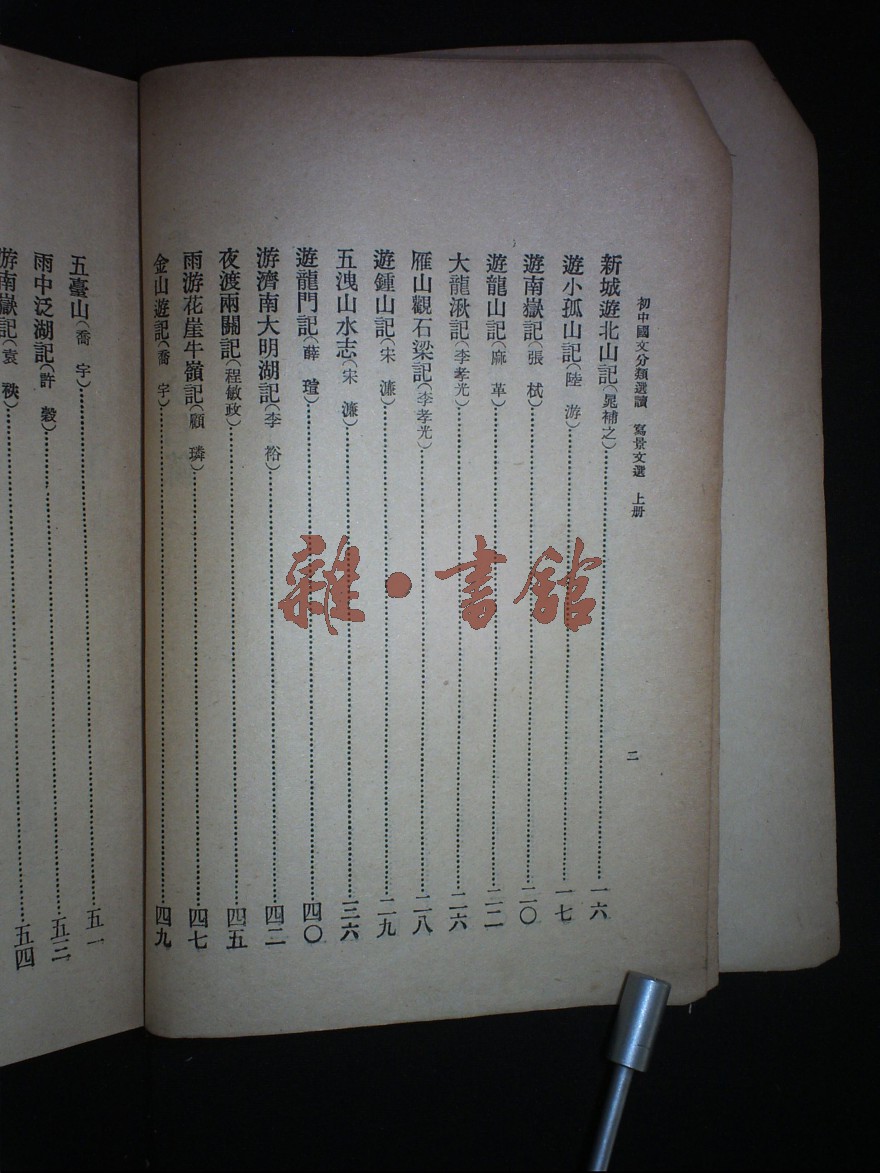 初中國文分類選讀　寫景文選　上册
二
新城遊北山記(晁補之)……一六
遊小孤山記(陸　游)……一七
遊南嶽記(張　栻)……二〇
遊龍山記(麻　革)……二二
大龍湫記(李孝光)……二六
雁山觀石梁記(李孝光)……二八
遊鍾山記(宋　濂)……二九
五洩山水志(宋　濂)……三六
遊龍門記(薛　瑄)……四〇
游濟南大明湖記(李　裕)……四二
夜渡兩關記(程敏政)……四五
雨游花崖牛嶺記(顧　璘)……四七
金山遊記(喬　宇)……四九
五臺山(喬　宇)……五一
雨中泛湖記(許　穀)……五三
游南嶽記(袁　袠)……五四
雜·書館